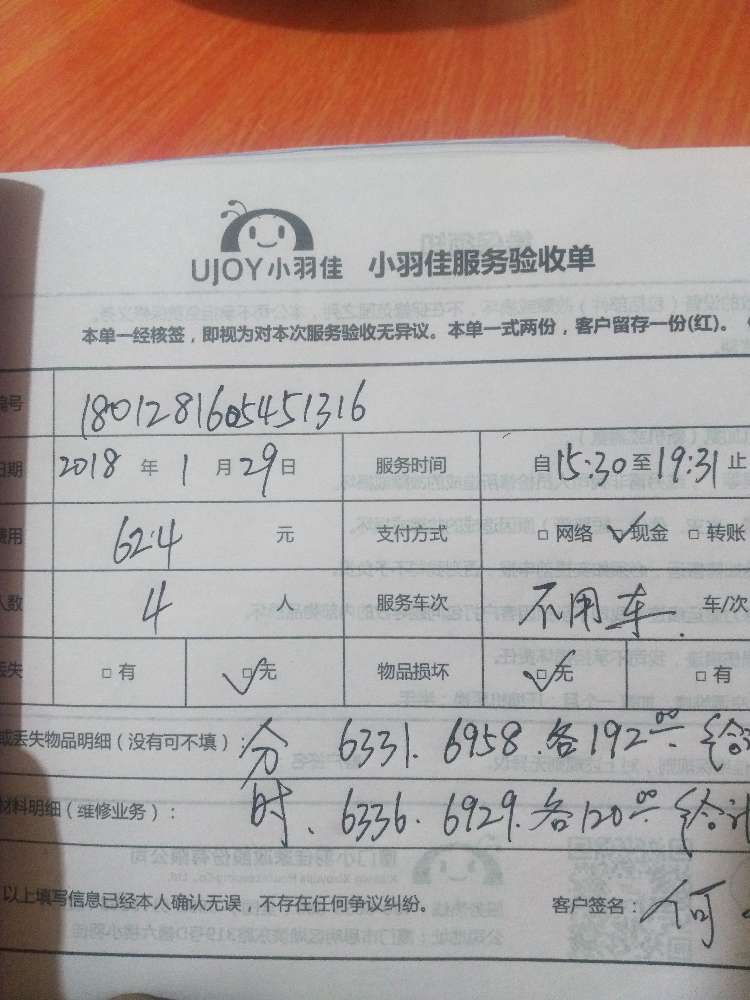 UJOY小羽佳 小羽佳服务验收单
本单一经核签，即视为对本次服务验收无异议。本单一式两份，客户留存一份(红)。
号 1801281605451316
期 2018 年 1 月 29 日 服务时间 自 15:30 至 19:31 止
费用 62.4 元 支付方式 □ 网络 ✓ 现金 □ 转账
人数 4 人 服务车次 不用车. 车/次
丢失 □ 有 ✓ 无 物品损坏 ✓ 无 □ 有
或丢失物品明细（没有可不填）： 分 6331. 6958. 各192.00
材料明细（维修业务）： 时、6336. 6929. 各120.00
以上填写信息已经本人确认无误，不存在任何争议纠纷。 客户签名： 何